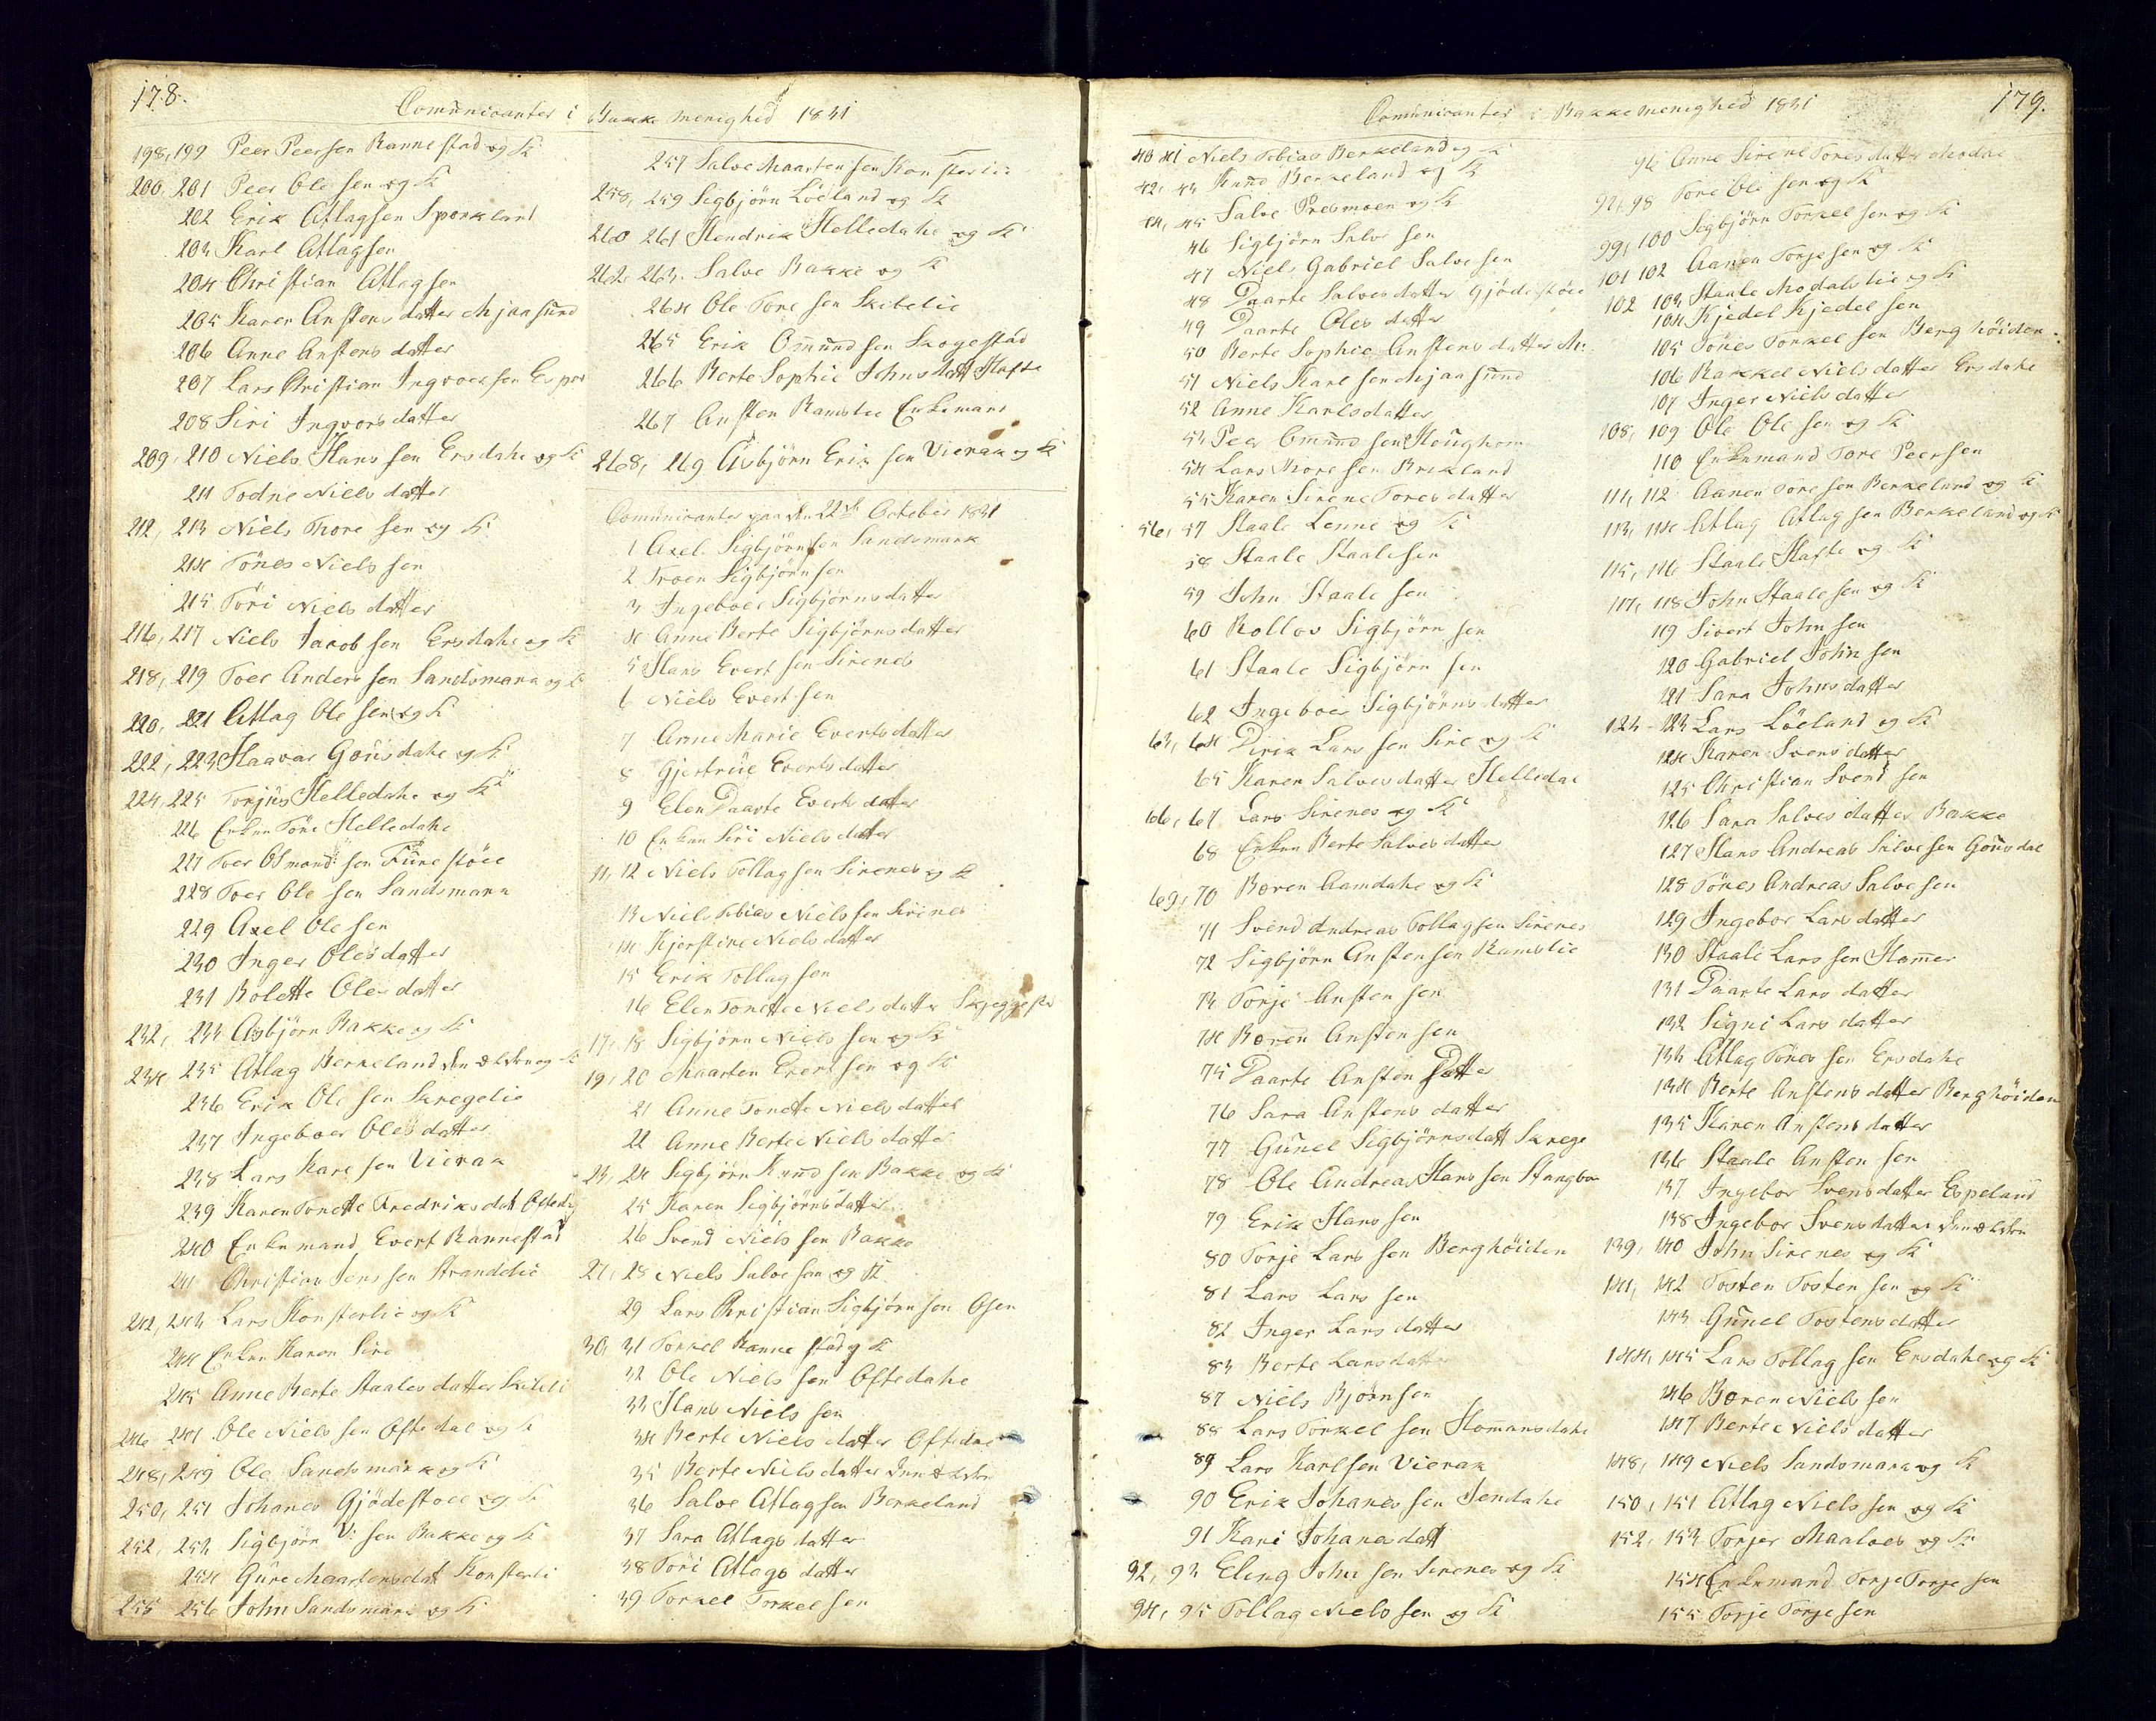 178.
Comunicanter i Bakke menighed 1831
198, 199 Peer Peersen Rannestad og K
200, 201 Peer Olesen og K
202 Erik Atlagsen Sporkland
203 Karl Atlagsen
204 Christian Atlagsen
205 Karen Anstensdatter Mjaasund
206 Anne Anstensdatter
207 Lars Christian Ingvorsen Espe
208 Siri Ingvorsdatter
209, 210 Niels Hans sen Ersdahe og K
211 Todne Nielsdatter
212, 213 Niels Thore sen og K
214 Tönes Nielsen
215 Töri Nielsdatter
216, 217 Niels Jacobsen Ersdahe og K
218, 219 Toer Anders sen Sandsmark og K
220, 221 Atlag Olesen og K
222, 223 Haavar Gousdahe og K
224, 225 Torjus Helledahe og K
226 Enken Töre Helledahe
227 Toer Osmand sen Funestöee
228 Toer Ole sen Sandsmark
229 Axel Olesen
230 Inger Olesdatter
231 Bolette Olesdatter
232, 233 Asbjörn Bakke og K
234, 235 Atlag Berkeland den ældre og K
236 Erik Ole sen Skregelie
237 Ingeboer Olesdatter
238 Lars Karlsen Vierak
239 Karen Tonette Fredriksdat Oftedal
240 Enkemand Evert Rannestad
241 Christian Jens sen Strandelie
242, 243 Lars Konsterlie og K
244 Enken Karen Sire
245 Anne Berte Staalesdatter Skibeli
246 247 Ole Nielsen Oftedal og K
248, 249 Ole Sandsmark og K
250, 251 Johanes Gjödestöee og K
252, 253 Sigbjörn V: sen Bakke og K
254 Gure Maartensdat Konsterli
255 256 John Sandsmark og K
257 Salve Maartensen Konsterlie
258, 259 Sigbjörn Löeland og K
260 261 Hendrik Helledahe og K
262, 263. Salve Bakke og K
264 Ole Tore sen Skibelie
265 Erik Omund sen Skogestad
266 Berte Sophie Johnsdatt Hafte
267 Ansten Ramslie Enkemand
268, 269 Asbjörn Erik sen Vierak og K
Comunicanter paa den 22de October 1831
1 Axel Sigbjörnsen Sandsmark
2 Troen Sigbjörnsen
3 Ingeboer Sigbjörnsdatter
4 Anne Berte Sigbjörnsdatter
5 Hans Evert sen Sirenes
6 Niels Evertsen
7 Anne Marie Evertsdatter
8 Gjertrue Evertsdatter
9 Elen Daarte Evertsdatter
10 Enken Siri Nielsdatter
11, 12 Niels Tollagsen Sirenes og K
13 Niels Tobias Nielssen Sirenes
14 Kjerstine Nielsdatter
15 Erik Tollagsen
16 Elen Tonette Nielsdatter Skjeggestad
17, 18 Sigbjörn Nielssen og K
19, 20 Maarten Evertsen og K
21 Anne Tonette Nielsdatter
22 Anne Berte Nielsdatter
23, 24 Sigbjörn Knud sen Bakke og K
25 Karen Sigbjörnsdatter
26 Svend Nielssen Bakke
27, 28 Niels Salvesen og K
29 Lars Christian Sigbjörnsen Osen
30, 31 Torkel Rannestad og K
32 Ole Nielssen Oftedahe
33 Hans Nielssen
34 Berte Nielsdatter Oftedal
35 Berte Nielsdatter den ældre
36 Salve Atlagsen Berkeland
37 Sara Atlagsdatter
38 Töri Atlagsdatter
39 Torkel Torkelsen
179.
Comunicanter i Bakke menighed 1831
40 41 Niels Tobias Berkeland og K
42, 43 Knud Berkeland og K
44, 45 Salve Presmoen og K
46 Sigbjörn Salvesen
47 Niels Gabriel Salvesen
48 Daarte Salvesdatter Gjödestöee
49 Daarte Olesdatter
50 Berte Sophie Anstensdatter M:
51 Niels Karlsen Mjaasund
52 Anne Karlsdatter
53 Peer Omund sen Houghom
54 Lars Thoresen Birkeland
55 Karen Sirene Toresdatter
56, 57 Staale Lenne og K
58 Staale Staalesen
59 John Staalesen
60 Rollov Sigbjörnsen
61 Staale Sigbjörnsen
62 Ingeboer Sigbjörnsdatter
63, 64 Dirik Larssen Sire og K
65 Karen Salvesdatter Helledal
66, 67 Lars Sirenes og K
68 Enken Berte Salvesdatter
69, 70 Boren Aamdahe og K
71 Svend Andreas Tollagsen Sirenes
72 Sigbjörn Anstensen Ramslie
73 Torje Anstensen
74 Boren Anstensen
75 Daarte Anstensdatter
76 Sara Anstensdatter
77 Gunel Sigbjörnsdatt Skrege
78 Ole Andreas Hans sen Stangbor
79 Erik Hanssen
80 Torje Lars sen Berghöiden
81 Lars Larssen
82 Inger Larsdatter
83 Berte Larsdatter
87 Niels Bjørnsen
88 Lars Torkel sen Homansdahe
89 Lars Karlsen Vierak
90 Erik Johanessen Jendahe
91 Kari Johanesdatt
92, 93 Eling John sen Sirenes og K
94, 95 Tollag Nielssen og K
96 Anne Sirene Toresdatter Modal
97, 98 Tore Olesen og K
99, 100 Sigbjörn Torkelsen og K
101 102 Aanen Torjesen og K
102 103 Staale Modalslie og K
104 Kjedel Kjedelsen
105 Tönes Torkelsen Berghöiden
106 Rakkel Nielsdatter Ersdahe
107 Inger Nielsdatter
108, 109 Ole Olesen og K
110 Enkemand Tore Peersen
111, 112 Aanen Toresen Berkeland og K
113, 114 Atlag Atlagsen Berkeland og K
115, 116 Staale Hafte og K
117, 118 John Staalesen og K
119 Sivert Johnsen
120 Gabriel Johnsen
121 Sara Johnsdatter
123 - 123 Lars Löeland og K
124 Karen Svensdatter
125 Christian Svendsen
126 Sara Salvesdatter Bakke
127 Hans Andreas Salvesen Gousdal
128 Tönes Andreas Salvesen
129 Ingebor Larsdatter
130 Staale Larssen Homer
131 Daarte Larsdatter
132 Signi Larsdatter
133 Atlag Tönes sen Ersdahe
134 Berte Anstensdatter Berghöiden
135 Karen Anstensdatter
136 Staale Anstensen
137 Ingebor Svensdatter Espeland
138 Ingebor Svensdatter den ældre
139, 140 John Sirenes og K
141, 142 Tosten Tostensen og K
143 Gunel Tostensdatter
144, 145 Lars Tollagsen Ersdahe og K
146 Boren Nielssen
147 Berte Nielsdatter
148, 149 Niels Sandsmark og K
150, 151 Atlag Nielssen og K
152, 153 Torjer Maaloes og K
154 Enkemand Torje Torjesen
155 Torje Torjesen